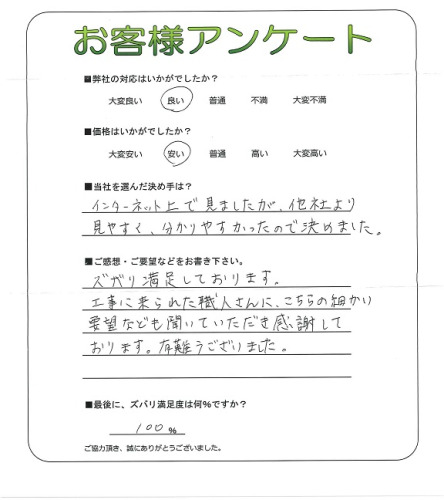 お客様アンケート
■弊社の対応はいかがでしたか？
大変良い 良い 普通 不満 大変不満
■価格はいかがでしたか？
大変安い 安い 普通 高い 大変高い
■当社を選んだ決め手は？
インターネット上で見ましたが、他社より
見やすく、分かりやすかったので決めました。
■ご感想・ご要望などをお書き下さい。
ズバリ満足しております。
工事に来られた職人さんに、こちらの細かい
要望なども聞いていただき感謝して
おります。有難うございました。
■最後に、ズバリ満足度は何%ですか？
100 %
ご協力頂き、誠にありがとうございました。